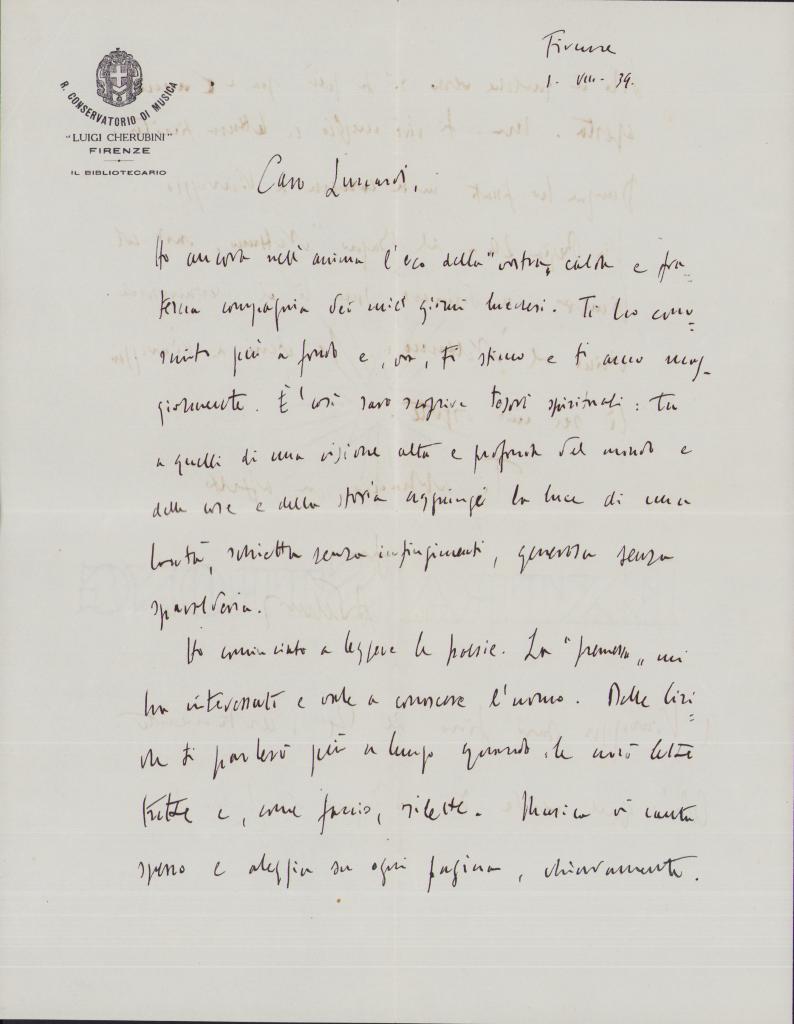 Firenze
1 - VIII - 39.
R. CONSERVATORIO DI MUSICA
"LUIGI CHERUBINI"
FIRENZE
IL BIBLIOTECARIO
Caro
Ho ancora nell'anima l'eco della "vostra" calda e fra=
terna compagnia dei miei giorni lucchesi. Ti ho cono=
sciuto più a fondo e, ora, ti stimo e ti amo mag-
giormente. È così raro scoprire tesori spirituali: tu
a quelli di una visione alta e profonda del mondo e
delle cose e della storia aggiungi la luce di una
bontà, schietta senza infingimenti, generosa senza
spavalderia.
Ho cominciato a leggere le poesie. La "premessa" mi
ha interessato e vale a conoscere l'uomo. Delle liri=
che ti parlerò più a lungo quando le avrò lette
tutte e, come faccio, rilette. Musica vi canta
spesso e aleggia su ogni pagina, chiaramente.